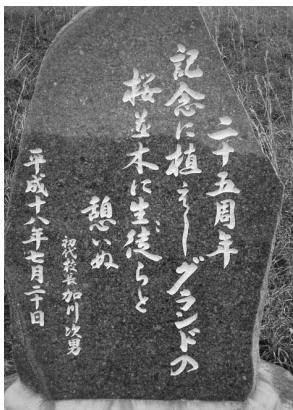 二十五周年
記念に植えしグランドの
桜並木に生徒らと
憩いぬ
初代校長 加川次男
平成十八年七月二十日